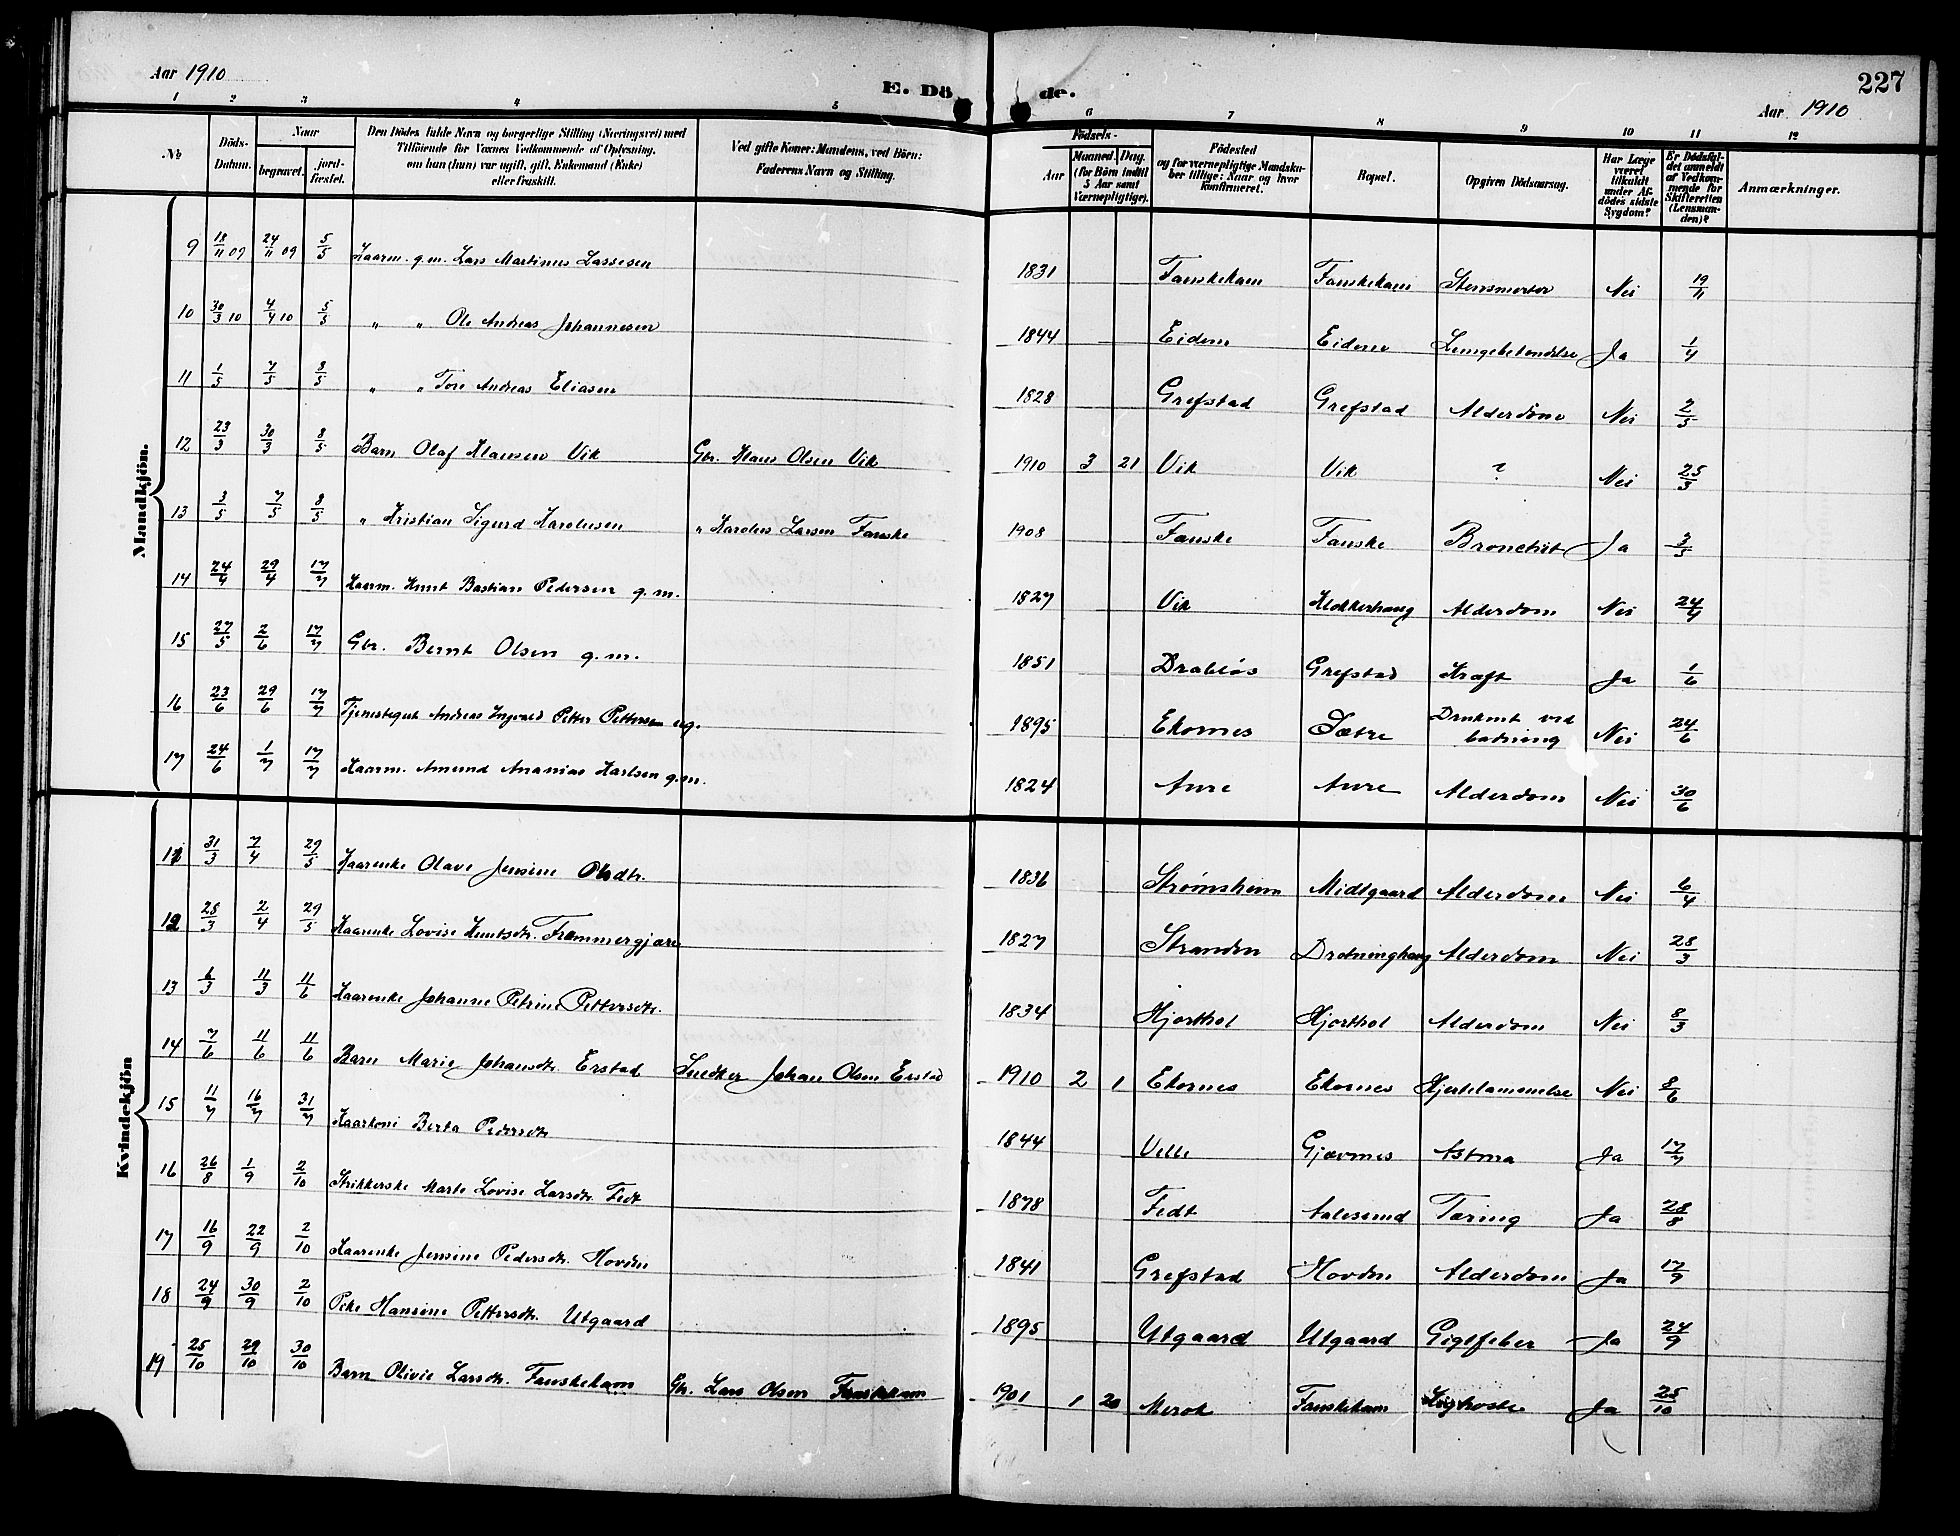 Aar 1910
E. Dö de.
227
Aar 1910
1 2 3 4 5 6 7 8 9 10 11 12
No
Döds-Datum.
Naar
begravet.
jord-fæstet.
Den Dödes fulde Navn og borgerlige Stilling (Næringsvei) med
Tilföiende for Voxnes Vedkommende af Oplysning,
om han (hun) var ugift, gift, Enkemand (Enke)
eller fraskilt.
Ved gifte Koner: Mandens, ved Börn:
Faderens Navn og Stilling.
Födsels-
Aar
Maaned. Dag.
(for Börn indtil
5 Aar samt
Værnepligtige).
Födested
og for værnepligtige Mandska-
ber tillige: Naar og hvor
konfirmeret.
Bopæl.
Opgiven Dödsaarsag.
Har Læge
været
tilkaldt
under Af-
dödes sidste
Sygdom?
Er Dödsfal-
det anmeldt
af Vedkom-
mende for
Skifteretten
(Lensman-
den)?
Anmærkninger.
Mandkjön.
9 18/11 09 24/11 09 5/5 Kaarm. g.m. Lars Martinus Lassesen 1831 Fauskekam Fauskekam Stensmerter Nei 19/11
10 30/3 10 4/4 10 5/5 " " Ole Andreas Johannesen 1844 Eidem Eidem Lungebetændelse Ja 1/4
11 1/5 7/5 8/5 " " Tore Andreas Eliasen 1828 Grefstad Grefstad Alderdom Nei 2/5
12 23/3 30/3 8/5 Barn Olaf Klausen Vik Gbr. Klaus Olsen Vik 1910 3 21 Vik Vik ? Nei 25/3
13 3/5 7/5 8/5 " Kristian Sigurd Karolusen " Karolus Larsen Fauske 1908 Fauske Fauske Bronchit Ja 3/5
14 24/4 29/4 17/7 Kaarm. Knut Bastian Pedersen g.m. 1827 Vik Klokkerhaug Alderdom Nei 24/4
15 27/5 2/6 17/7 Gbr. Bernt Olsen g.m. 1851 Drabløs Grefstad Kræft Ja 1/6
16 23/6 29/6 17/7 Tjenestegut Andreas Ingvald Petter Pettersen ug. 1895 Ekornes Sætre Druknet ved badning Nei 24/6
17 24/6 1/7 17/7 Kaarm. Amund Ananias Karlsen g.m. 1824 Aure Aure Alderdom Nei 30/6
Kvindekjön
11 31/3 7/4 29/5 Kaarenke Olave Jensine Olsdtr. 1836 Strømsheim Midtgaard Alderdom Nei 6/4
12 28/3 2/4 29/5 Kaarenke Lovise Knutsdtr. Frammergjære 1827 Stranden Drotninghaug Alderdom Nei 28/3
13 6/3 11/3 11/6 Kaarenke Johanne Petrine Pettersdtr. 1834 Hjorthol Hjorthol Alderdom Nei 8/3
14 7/6 11/6 11/6 Barn Marie Johansdtr. Erstad Snedker Johan Olsen Erstad 1910 2 1 Ekornes Ekornes Hjertelammelse Nei 8/6
15 11/7 16/7 31/7 Kaarkoni Berta Pedersdtr 1844 Velle Gjævnes Astma Ja 17/7
16 26/8 1/9 2/10 Strikkerske Marte Lovise Larsdtr. Fedt 1878 Fedt Aalesund Tæring Ja 28/8
17 16/9 22/9 2/10 Kaarenke Jensine Pedersdtr. Hovden 1841 Grefstad Hovden Alderdom Ja 17/9
18 24/9 30/9 2/10 Pike Hansine Pettersdtr. Utgaard 1895 Utgaard Utgaard Gigtfeber Ja 24/9
19 25/10 29/10 30/10 Barn Olivie Larsdtr. Fauskekam Gbr. Lars Olsen Fauskekam 1901 1 20 Merok Fauskekam Kighoste Ja 25/10